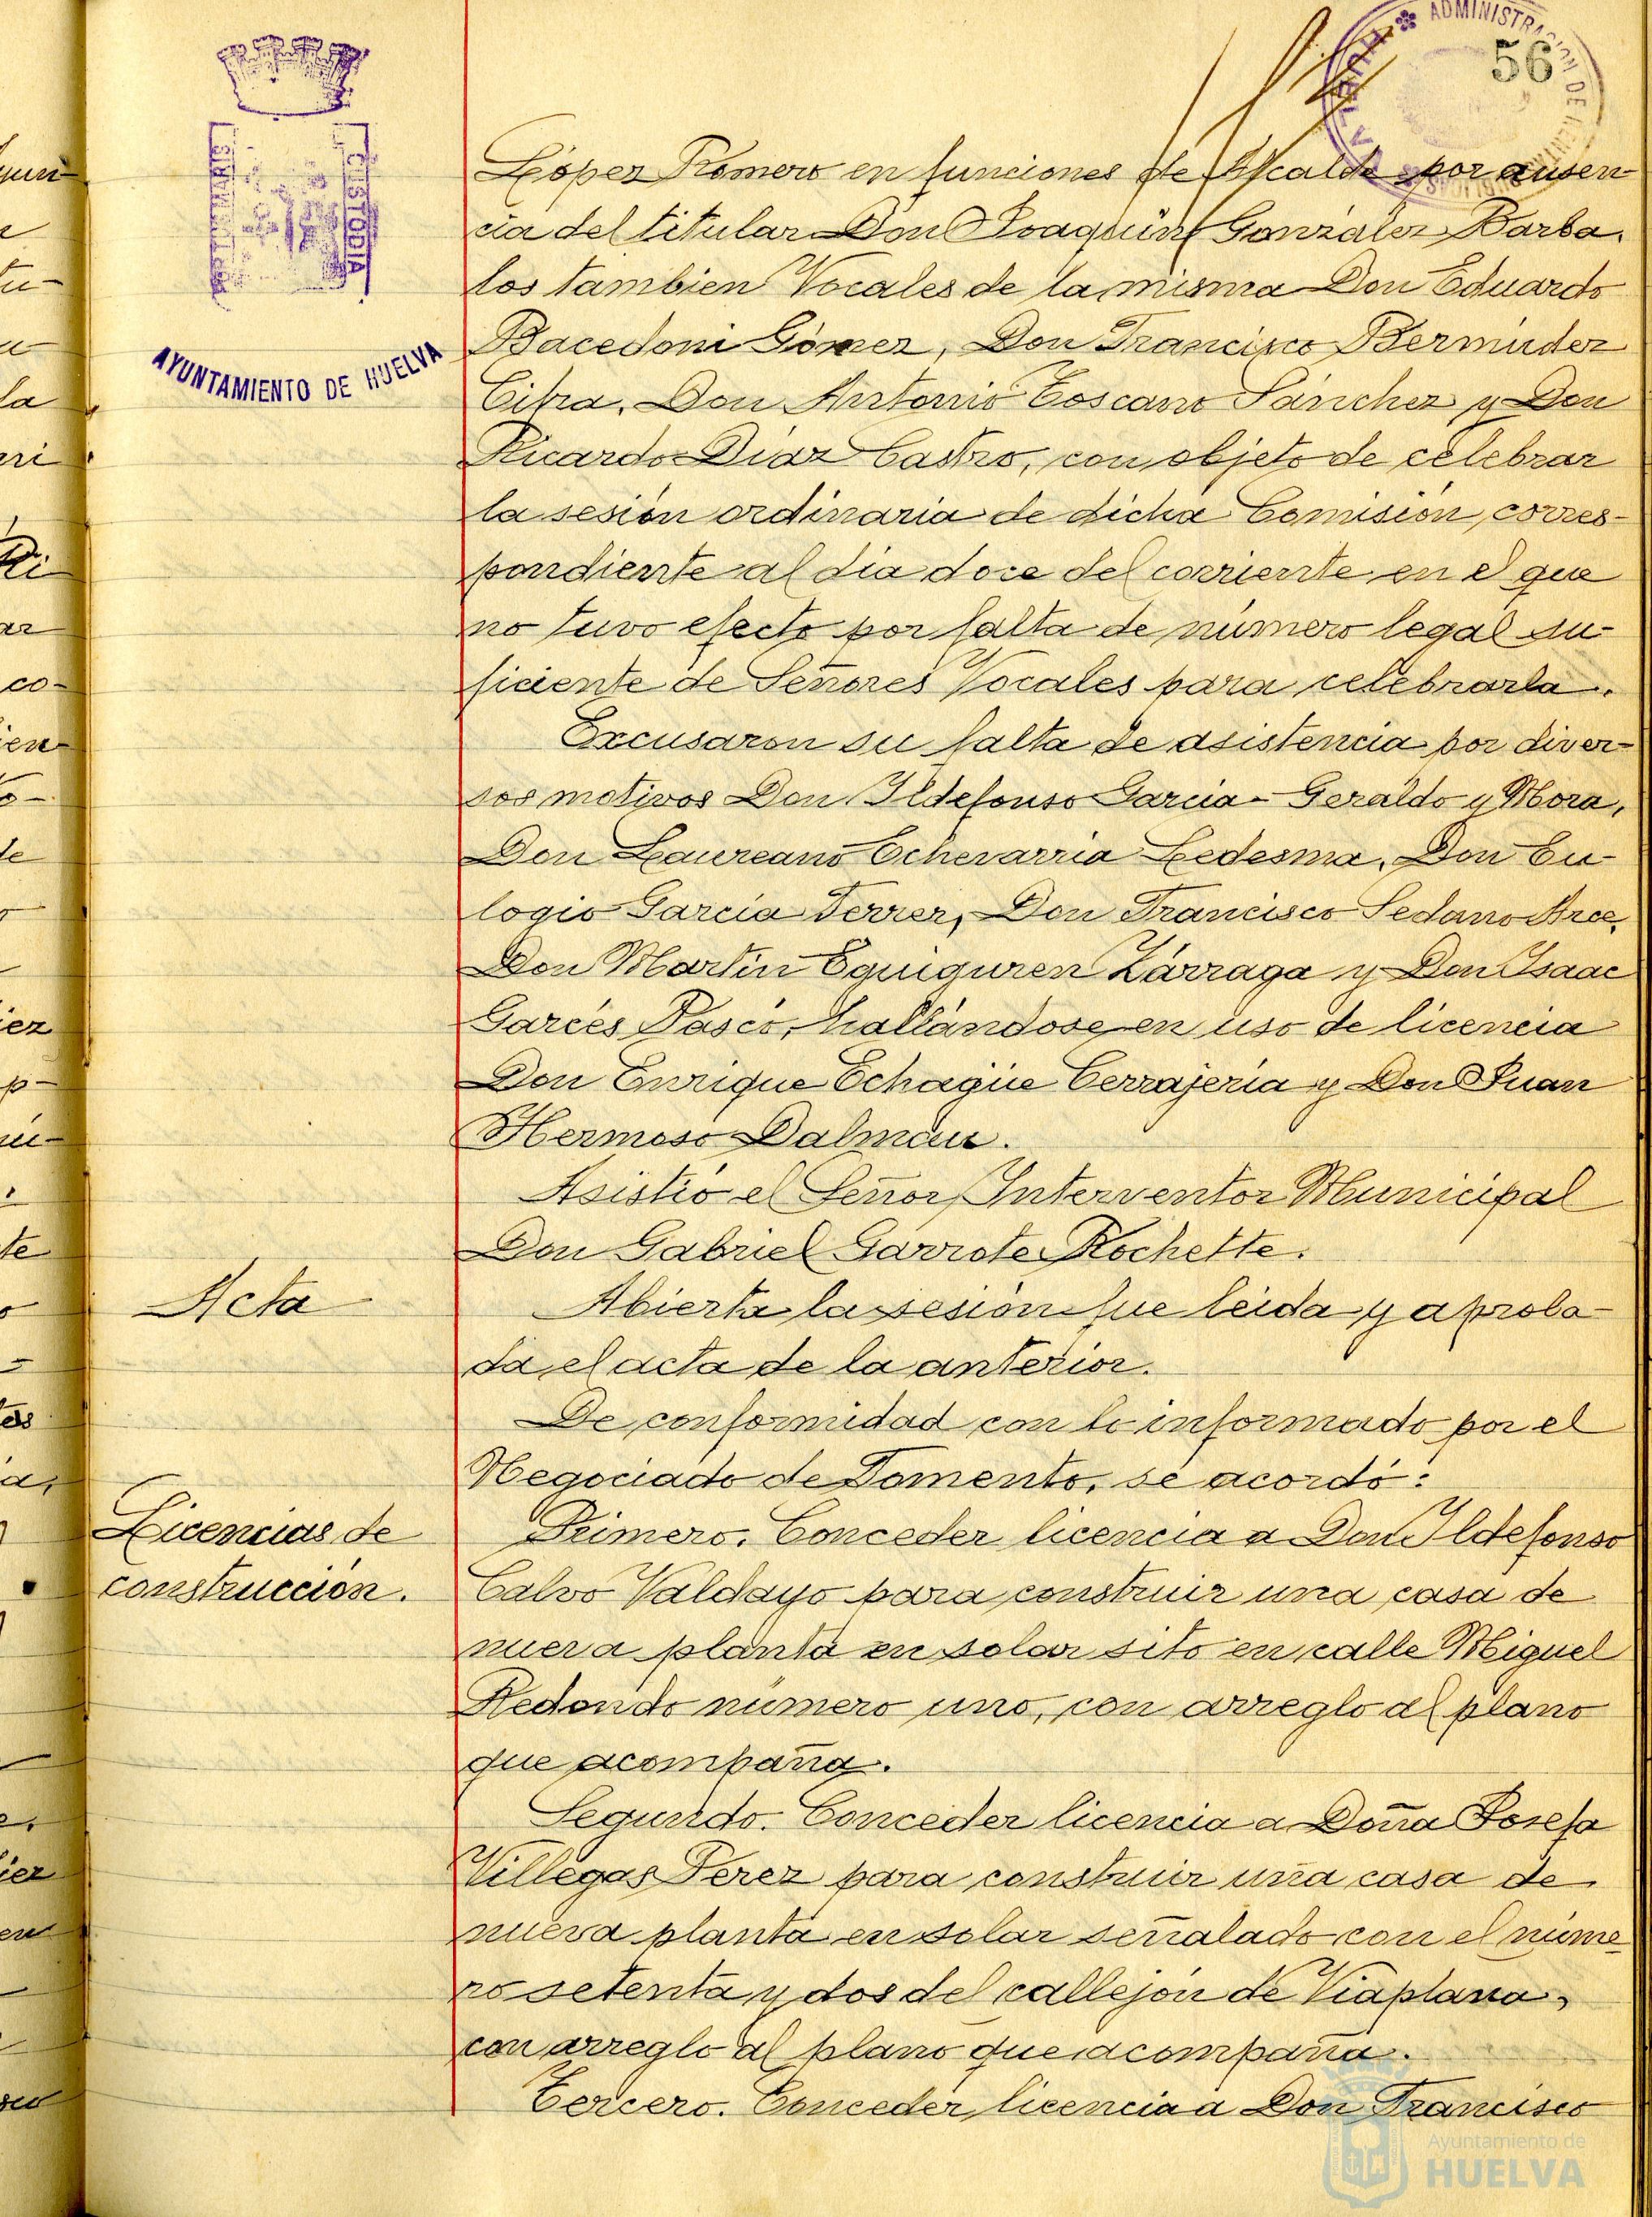 56
ADMINISTRACION DE
PORTUS MARIS
CUSTODIA
AYUNTAMIENTO DE HUELVA
López Romero en funciones de Alcalde por ausen-
cia del titular Don Joaquín González Barba,
los tambien Vocales de la misma Don Eduardo
Bacedoni Gómez, Don Francisco Bermúdez
Cifra, Don Antonio Toscano Sánchez y Don
Ricardo Díaz Castro, con objeto de celebrar
la sesión ordinaria de dicha Comisión, corres-
pondiente al dia doce del corriente en el que
no tuvo efecto por falta de número legal su-
ficiente de Señores Vocales para celebrarla.
Excusaron su falta de asistencia por diver-
sos motivos Don Ildefonso Garcia-Geraldo y Mora,
Don Laureano Echevarria Ledesma, Don Eu-
logio García Ferrer, Don Francisco Sedano Arce,
Don Martín Eguiguren Zárraga y Don Isaac
Garcés Pasco, hallándose en uso de licencia
Don Enrique Echagüe Cerrajería y Don Juan
Hermoso Dalmau.
Asistió el Señor Interventor Municipal
Don Gabriel Garrote Rochette.
Acta
Abierta la sesión fue leida y aproba-
da el acta de la anterior.
De conformidad con lo informado por el
Negociado de Fomento, se acordó:
Licencias de
construcción.
Primero. Conceder licencia a Don Ildefonso
Calvo Valdayo para construir una casa de
nueva planta en solar sito en calle Miguel
Redondo número uno, con arreglo al plano
que acompaña.
Segundo. Conceder licencia a Doña Josefa
Villegas Perez para construir una casa de
nueva planta en solar señalado con el núme
ro setenta y dos del callejón de Viaplana,
con arreglo al plano que acompaña.
Tercero. Conceder licencia a Don Francisco
Ayuntamiento de
HUELVA